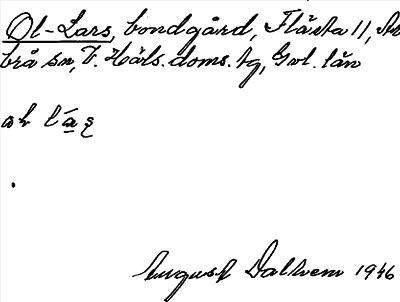 Ol-Lars, bondgård, Flästa 11, Ar
brå sn, V. Häls. doms. tg, Gvl. län
ɷh láʂ
August Dalhem 1946